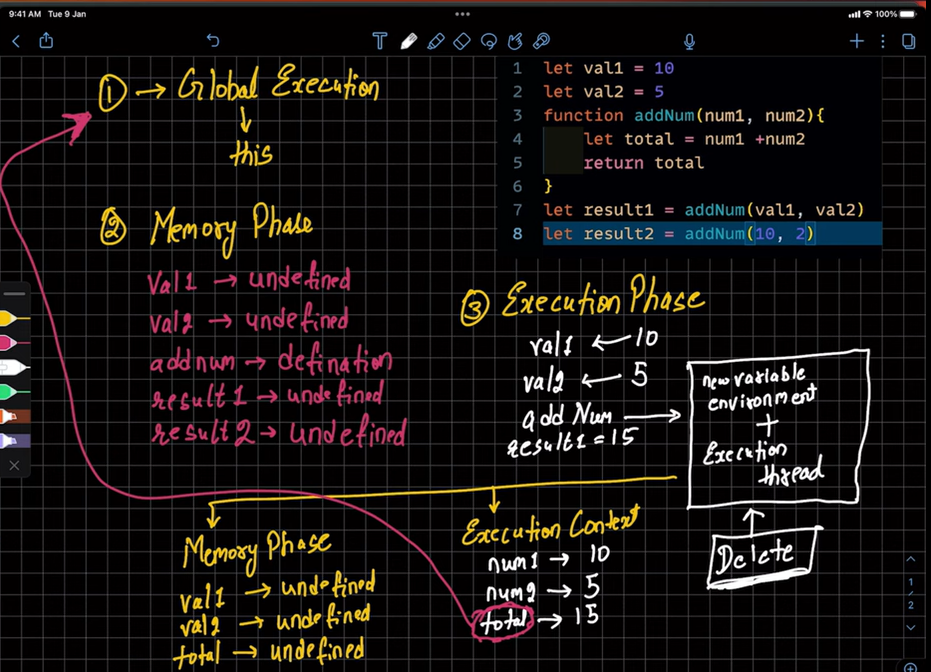 9:41 AM Tue 9 Jan
100%
① → Global Execution
this
② Memory Phase
Val1 → undefined
val2 → undefined
addnum → defination
result1 → undefined
result2 → undefined
1 let val1 = 10
2 let val2 = 5
3 function addNum(num1, num2){
4 let total = num1 +num2
5 return total
6 }
7 let result1 = addNum(val1, val2)
8 let result2 = addNum(10, 2)
③ Execution Phase
val1 ← 10
val2 ← 5
add Num →
result1 = 15
new variable
environment
+
Execution
thread
Delete
Memory Phase
val1 → undefined
val2 → undefined
total → undefined
Execution Context
num1 → 10
num2 → 5
total → 15
1
2